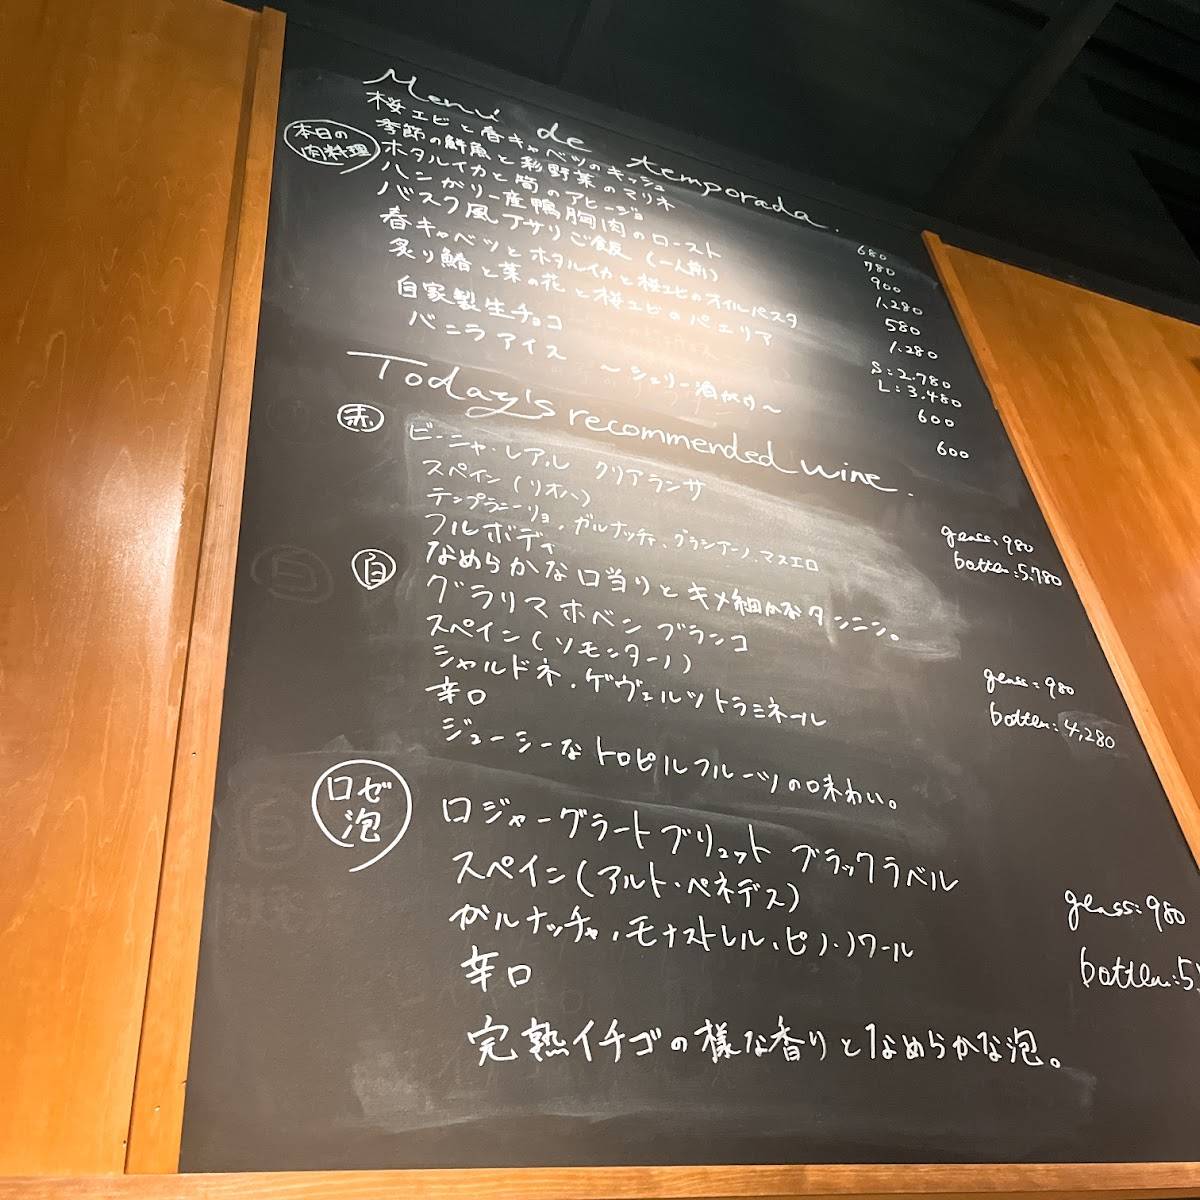 Menú de temporada.
桜エビと春キャベツのキッシュ 680
季節の鮮魚と彩野菜のマリネ 780
ホタルイカと筍のアヒージョ 900
本日の
肉料理
ハンガリー産鴨胸肉のロースト 1,280
バスク風アサリご飯(一人前) 580
春キャベツとホタルイカと桜エビのオイルパスタ 1,280
炙り鰆と菜の花と桜エビのパエリア S:2,780
L:3,480
自家製生チョコ 600
バニラアイス ~シェリー酒がけ~ 600
Today's recommended wine.
赤
ビーニャ・レアル クリアランサ
スペイン(リオハ) glass:980
テンプラニーリョ、ガルナッチャ、グラシアーノ、マスエロ botten:5,780
フルボディ
なめらかな口当りとキメ細かなタンニン。
白
グラリマ ホベン ブランコ
スペイン(ソモンターノ) glass:980
シャルドネ・ゲヴェルツトラミネール botten:4,280
辛口
ジューシーなトロピルフルーツの味わい。
ロゼ
泡
ロジャーグラート ブリュット ブラックラベル
スペイン(アルト・ペネデス) glass:980
ガルナッチャ、モナストレル、ピノ・ノワール botten:5,
辛口
完熟イチゴの様な香りとなめらかな泡。